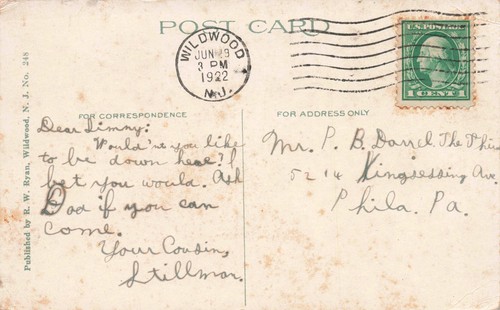 POST CARD
WILDWOOD
JUN 28
3 PM
1922
N.J.
U.S. POSTAGE
1 CENT 1
FOR CORRESPONDENCE
FOR ADDRESS ONLY
Dear Jimmy:
Would'nt you like
to be down here? I
bet you would. Ask
Dad if you can
come.
Your Cousin,
Stillman.
Mr. P. B. Darrel. The Third
5214 Kingsessing Ave.
Phila. Pa.
Published by R. W. Ryan, Wildwood, N. J. No. 248